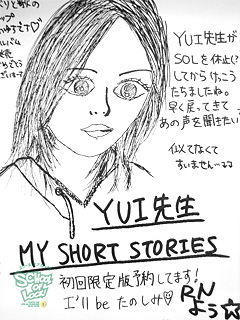 YUI先生が
SOLを休止!?
してからけっこう
たちましたね。
早く戻ってきて
あの声を聞きたい
似てなくて
すいません…
YUI先生
MY SHORT STORIES
初回限定版予約してます!
I'll be たのしみ
RN
よう☆
SCHOOL
OF
LOCK!